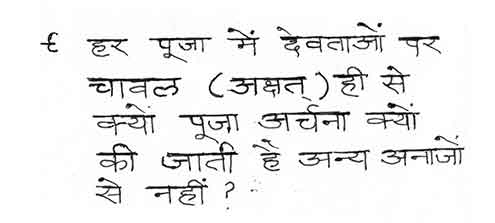 हर पूजा में देवताओं पर
चावल (अक्षत्) ही से
क्यों पूजा अर्चना क्यों
की जाती है अन्य अनाजों
से नहीं ?